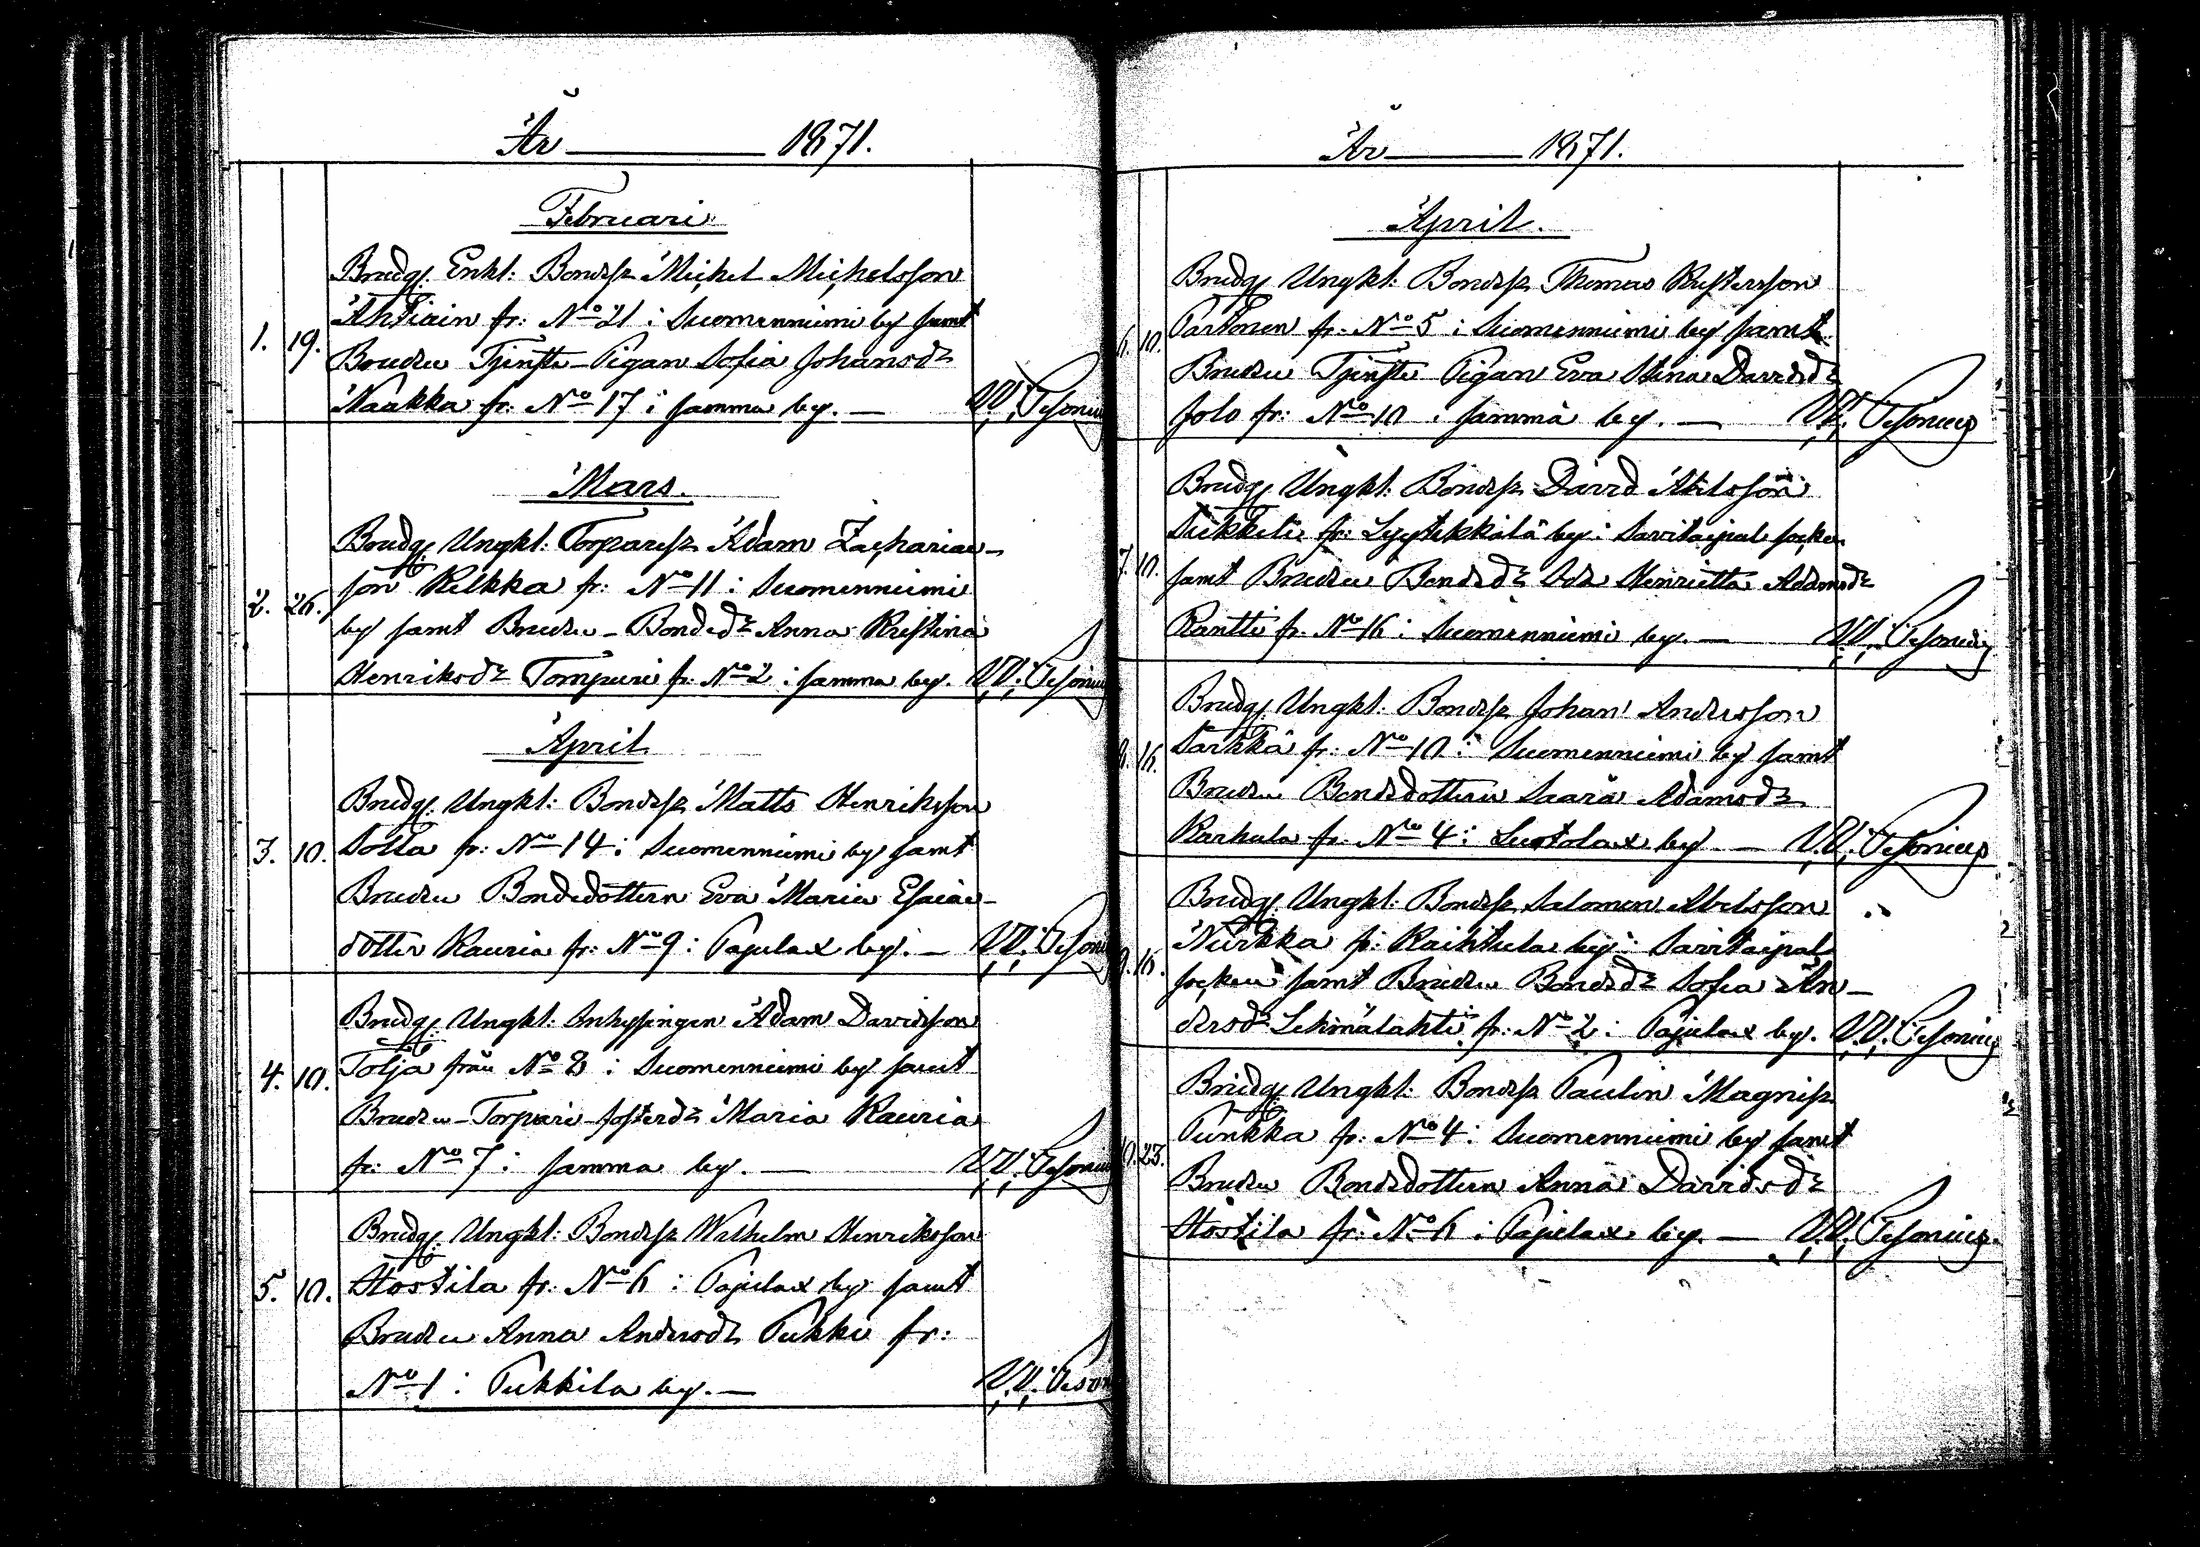 År ——— 1871.
Februari
Brudg. Enkl: Bondes. Michel Michelsson
Ahtiain fr: No 21 i Suomenniemi by samt
1. 19. Bruden Tjenste-Pigan Sofia Johansdr
Naakka fr: No 17 i samma by. — V.V. Pesonius
Mars.
Brudg. Ungkl: Torpares. Adam Zacharias-
son Kelkka fr: No 11 i Suomenniemi
2. 26. by samt Bruden - Bondedr Anna Kristina
Henriksdr Tompuri fr: No 2 i samma by. V.V. Pesonius
April
Brudg. Ungkl: Bondes. Matts Henriksson
3. 10. Sotta fr: No 14 i Suomenniemi by samt
Bruden Bondedottern Eva Maria Esaias-
dotter Kauria fr: No 9 i Pajulax by. — V.V. Peson
Brudg. Ungkl: Inhysingen Adam Davidsson
4. 10. Tolja från No 8 i Suomenniemi by samt
Bruden - Torpari-fosterdr Maria Kauria
fr: No 7 i samma by. — V.V. Pesonius
Brudg. Ungkl: Bondes. Wilhelm Henriksson
5. 10. Hostila fr: No 6 i Pajulax by samt
Bruden Anna Andersdr Pukki fr:
No 1 i Pukkila by. — V.V. Peson
År ——— 1871.
April.
Brudg. Ungkl: Bondes. Thomas Kristersson
6. 10. Partonen fr: No 5 i Suomenniemi by samt
Bruden Tjenste Pigan Eva Stina Davidsdr
Jolo fr: No 10 i samma by. — V.V. Pesonius
Brudg. Ungkl: Bondes. David Abelsson
Sickkeli fr: Lyytikkälä by i Savitaipal socken
7. 10. samt Bruden Bondedr Henrietta Adamsdr
Rantti fr: No 16 i Suomenniemi by. — V.V. Pesonius
Brudg. Ungkl: Bondes. Johan Andersson
8. 16. Särkkä fr: No 10 i Suomenniemi by samt
Bruden Bondedottern Saara Adamsdr
Karhula fr: No 4 i Luotolax by — V.V. Pesonius
Brudg. Ungkl: Bondes. Salomon Abelsson
9. 16. Nurkka fr: Kaihtula by i Savitaipal
socken samt Bruden Bondedr Sofia An-
dersdr Lehmälahti fr: No 2 i Pajulax by. V.V. Pesonius
Brudg. Ungkl: Bondes. Paulin Magnis.
10. 23. Punkka fr: No 4 i Suomenniemi by samt
Bruden Bondedottern Anna Davidsdr
Hostila fr: No 6 i Pajulax by. — V.V. Pesonius.